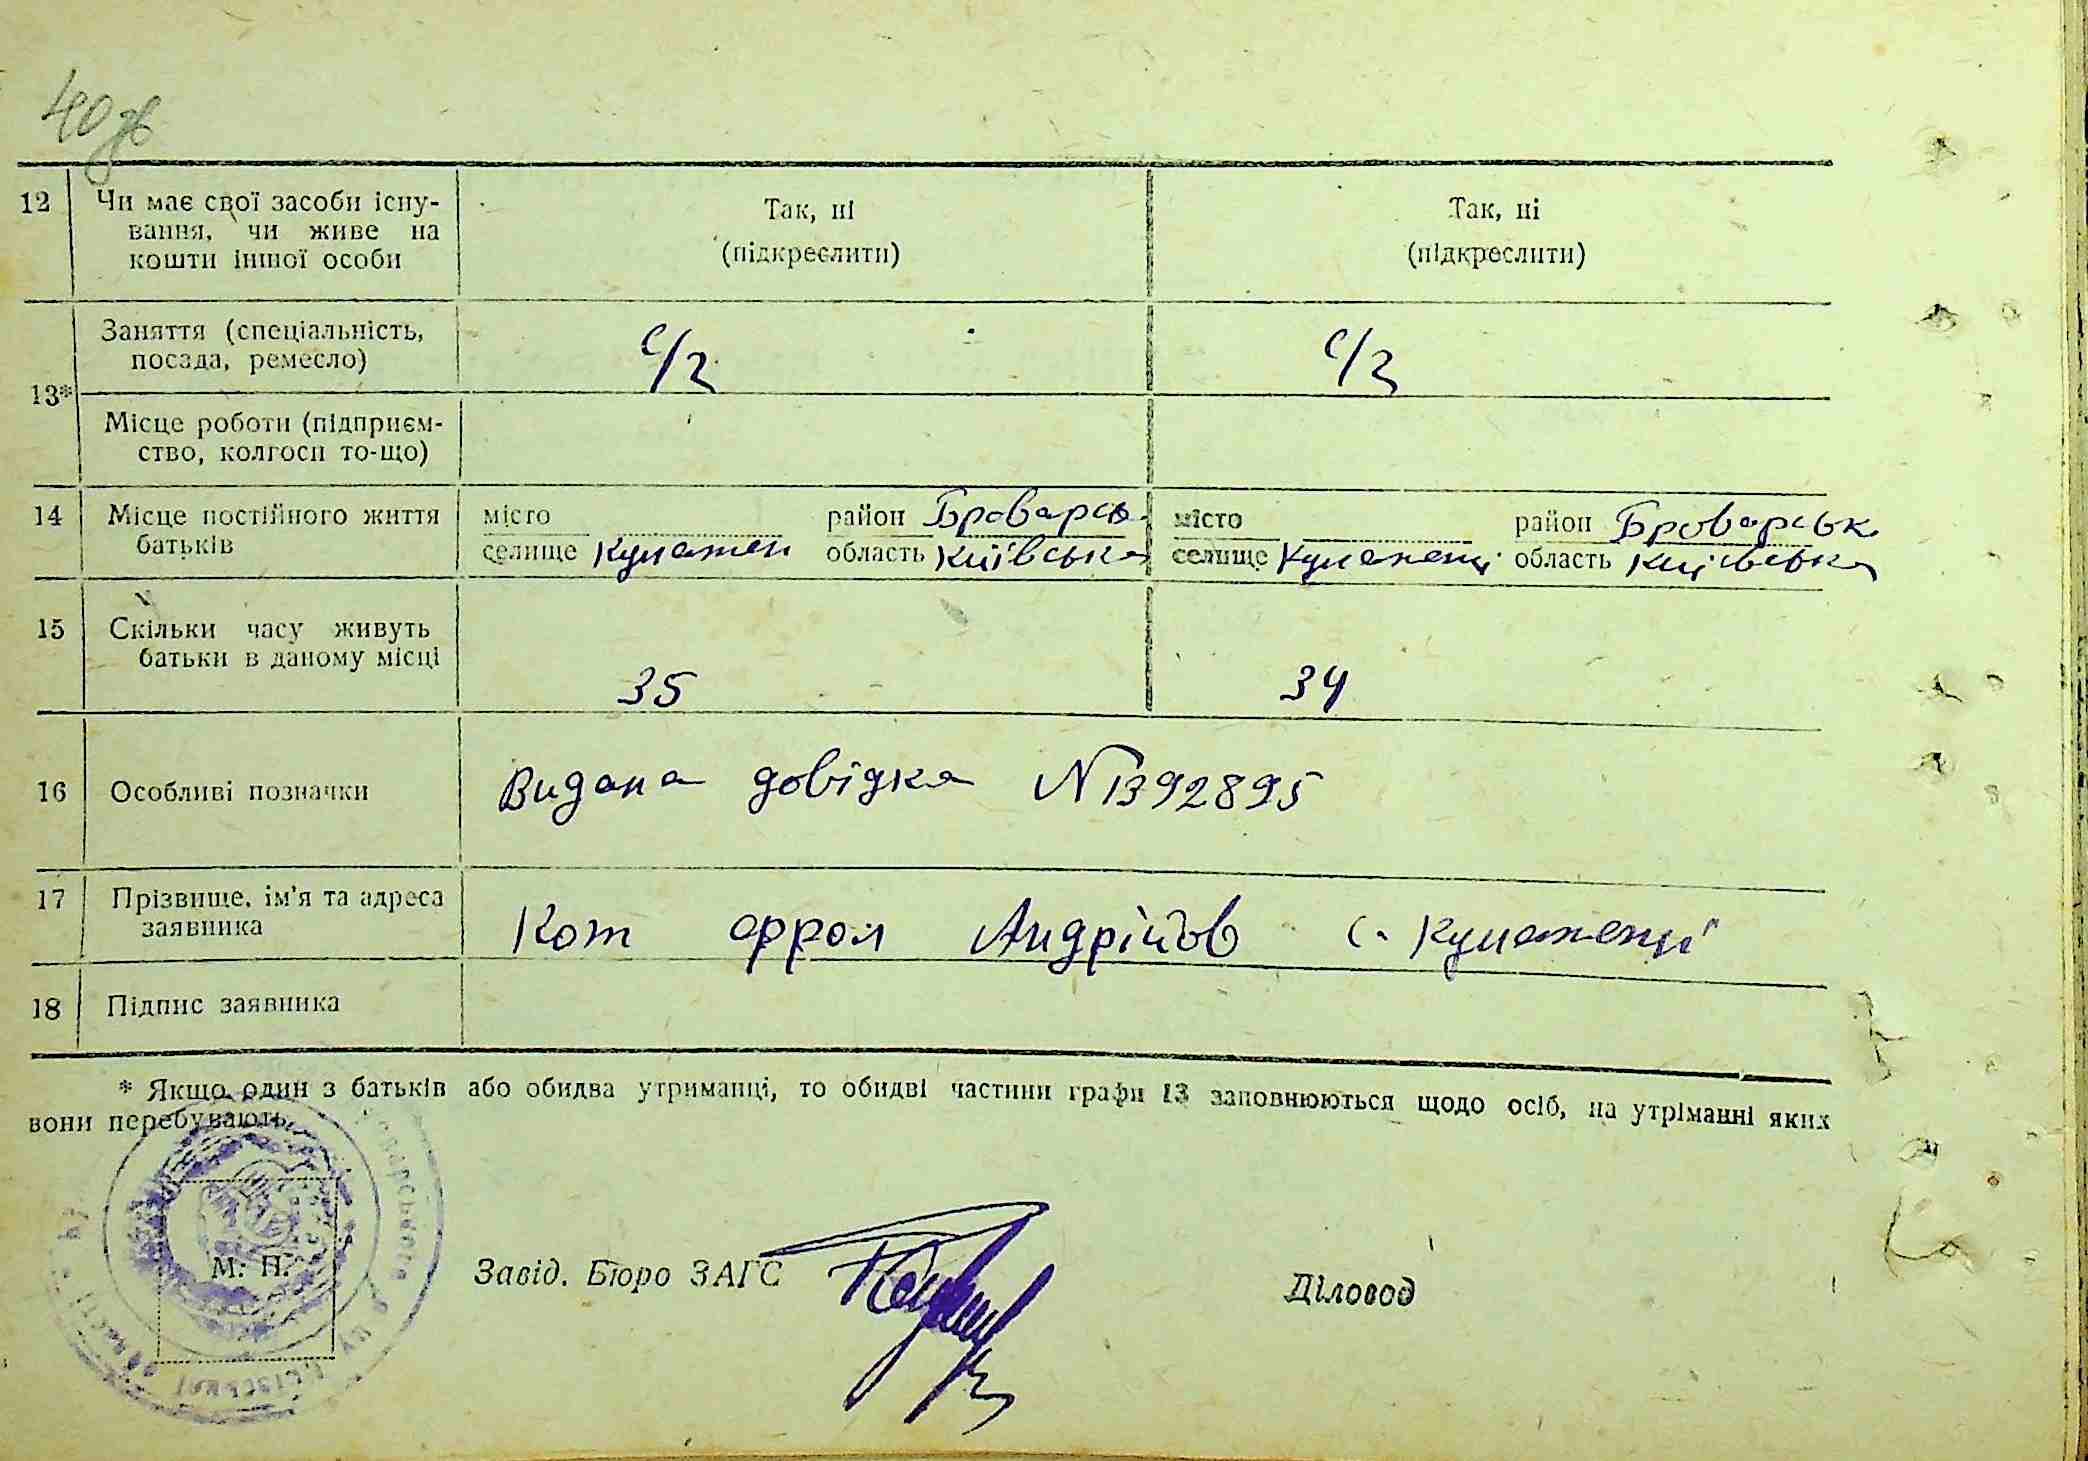 40 зв
12 Чи має свої засоби існу-
вання, чи живе на
кошти іншої особи
Так, ні
(підкреслити)
Так, ні
(підкреслити)
13*
Заняття (спеціальність,
посада, ремесло)
с/г
с/г
Місце роботи (підприєм-
ство, колгосп то-що)
14 Місце постійного життя
батьків
місто район Броварсь
селище Кулажен область Київська
місто район Броварськ
селище Кулаженці область Київська
15 Скільки часу живуть
батьки в даному місці
35
34
16 Особливі позначки
Видана довідка N1392895
17 Прізвище, ім'я та адреса
заявника
Кот Фрол Андрійов с. Кулаженці
18 Підпис заявника
* Якщо один з батьків або обидва утриманці, то обидві частини графи 13 заповнюються щодо осіб, на утріманні яких
вони перебувають.
М. П.
Завід. Бюро ЗАГС
Діловод